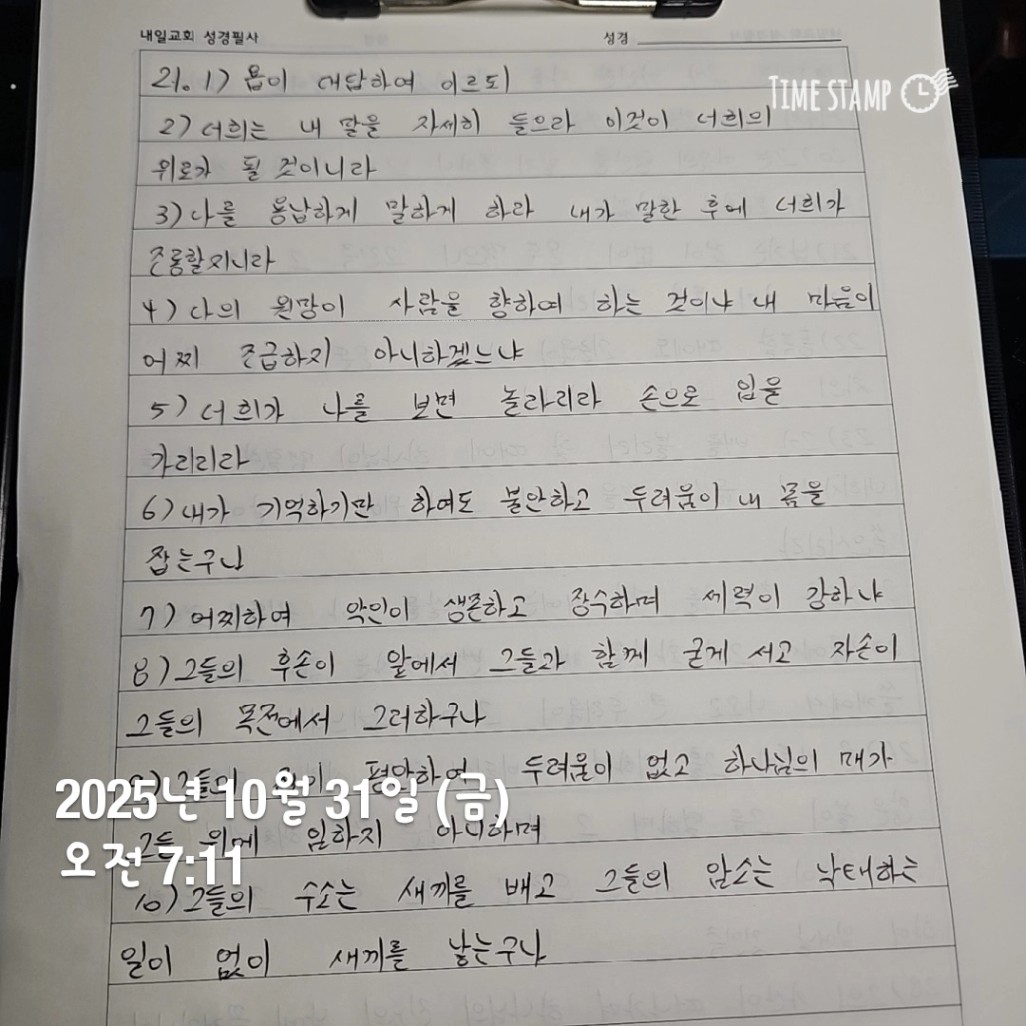 내일교회 성경필사 성경
TIME STAMP
21. 1) 욥이 대답하여 이르되
2) 너희는 내 말을 자세히 들으라 이것이 너희의
위로가 될 것이니라
3) 나를 용납하게 말하게 하라 내가 말한 후에 너희가
조롱할지니라
4) 나의 원망이 사람을 향하여 하는 것이냐 내 마음이
어찌 조급하지 아니하겠느냐
5) 너희가 나를 보면 놀라리라 손으로 입을
가리리라
6) 내가 기억하기만 하여도 불안하고 두려움이 내 몸을
잡는구나
7) 어찌하여 악인이 생존하고 장수하며 세력이 강하냐
8) 그들의 후손이 앞에서 그들과 함께 굳게 서고 자손이
그들의 목전에서 그러하구나
9) 그들의 평안하여 두려움이 없고 하나님의 매가
2025년 10월 31일 (금)
그들 위에 임하지 아니하며
오전 7:11
10) 그들의 수소는 새끼를 배고 그들의 암소는 낙태하는
일이 없이 새끼를 낳는구나